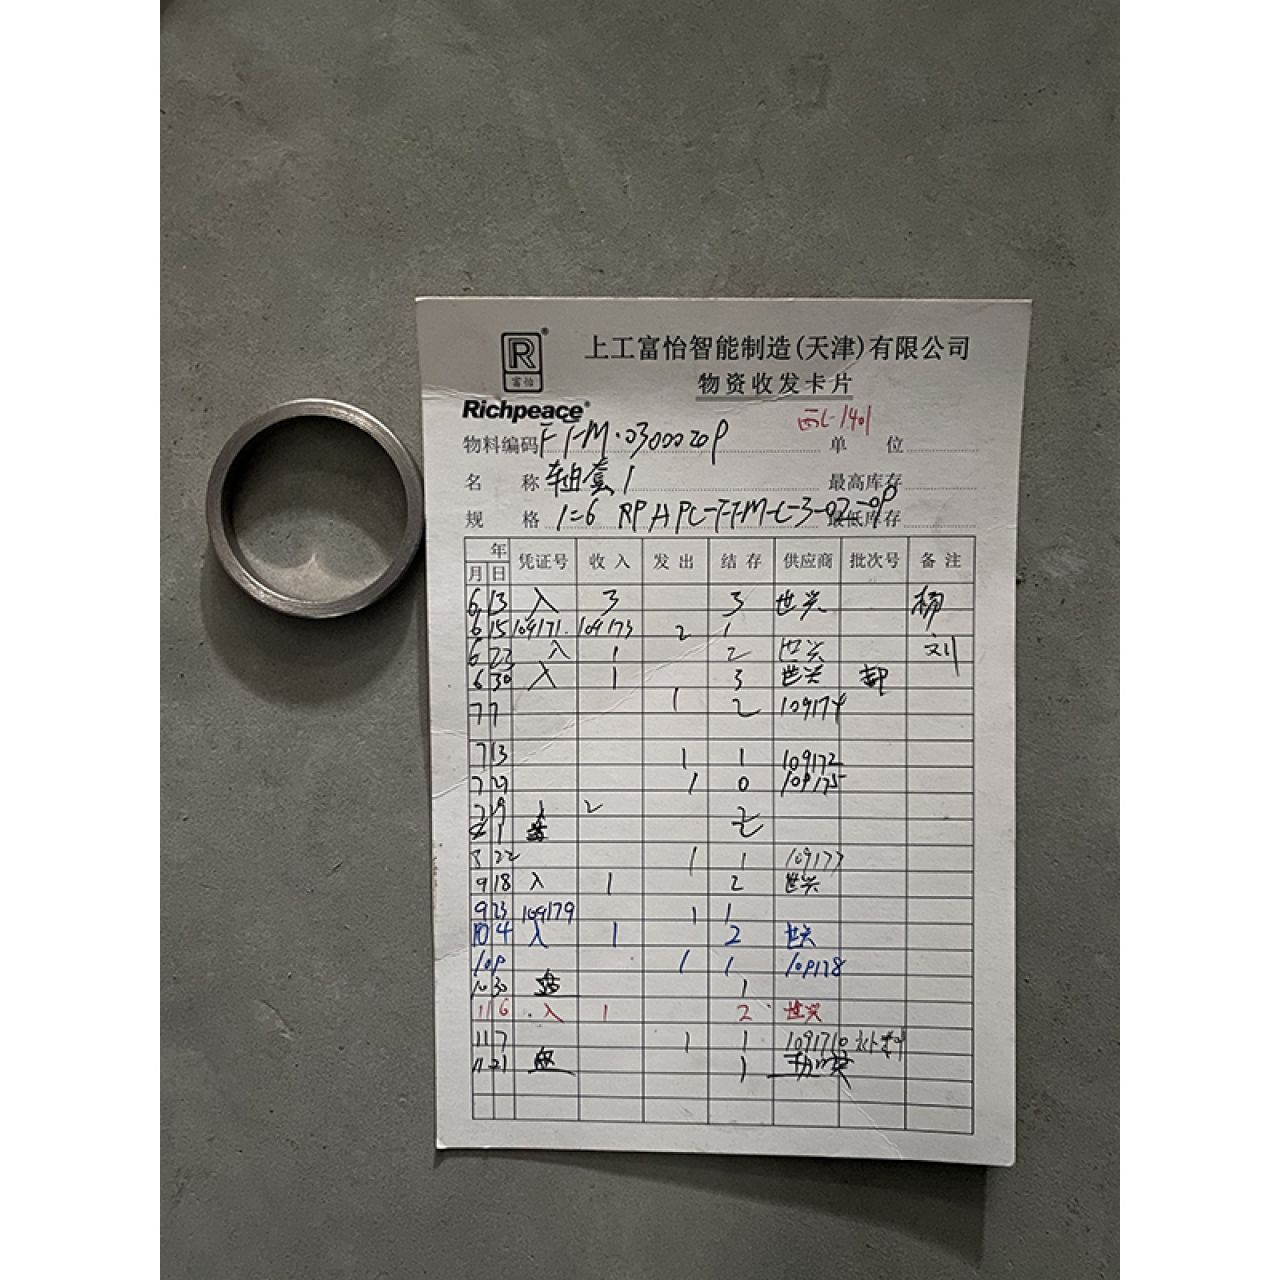 R®
富怡
Richpeace®
上工富怡智能制造(天津)有限公司
物资收发卡片
西C-1401
物料编码 FFM·0300020P 单位
名称 轴套1 最高库存
规格 1=6 RPHPC-FFM-C-3-02-0P 最低库存
年 凭证号 收入 发出 结存 供应商 批次号 备注
月 日
6 13 入 3 3 世兴 杨
6 15 109171. 109173 2 1
6 23 入 1 2 世兴 刘
6 30 入 1 3 世兴
7 7 1 2 109174
7 13 1 1 109172
7 27 1 0 109175
2
8 22 1 1 109177
9 18 入 1 2 世兴
9 23 109179 1 1
10 4 入 1 2 世兴
10 9 1 1 109178
10 30 盘 1
11 6 入 1 2 世兴
11 7 1 1 1091710 补料
11 21 盘 1